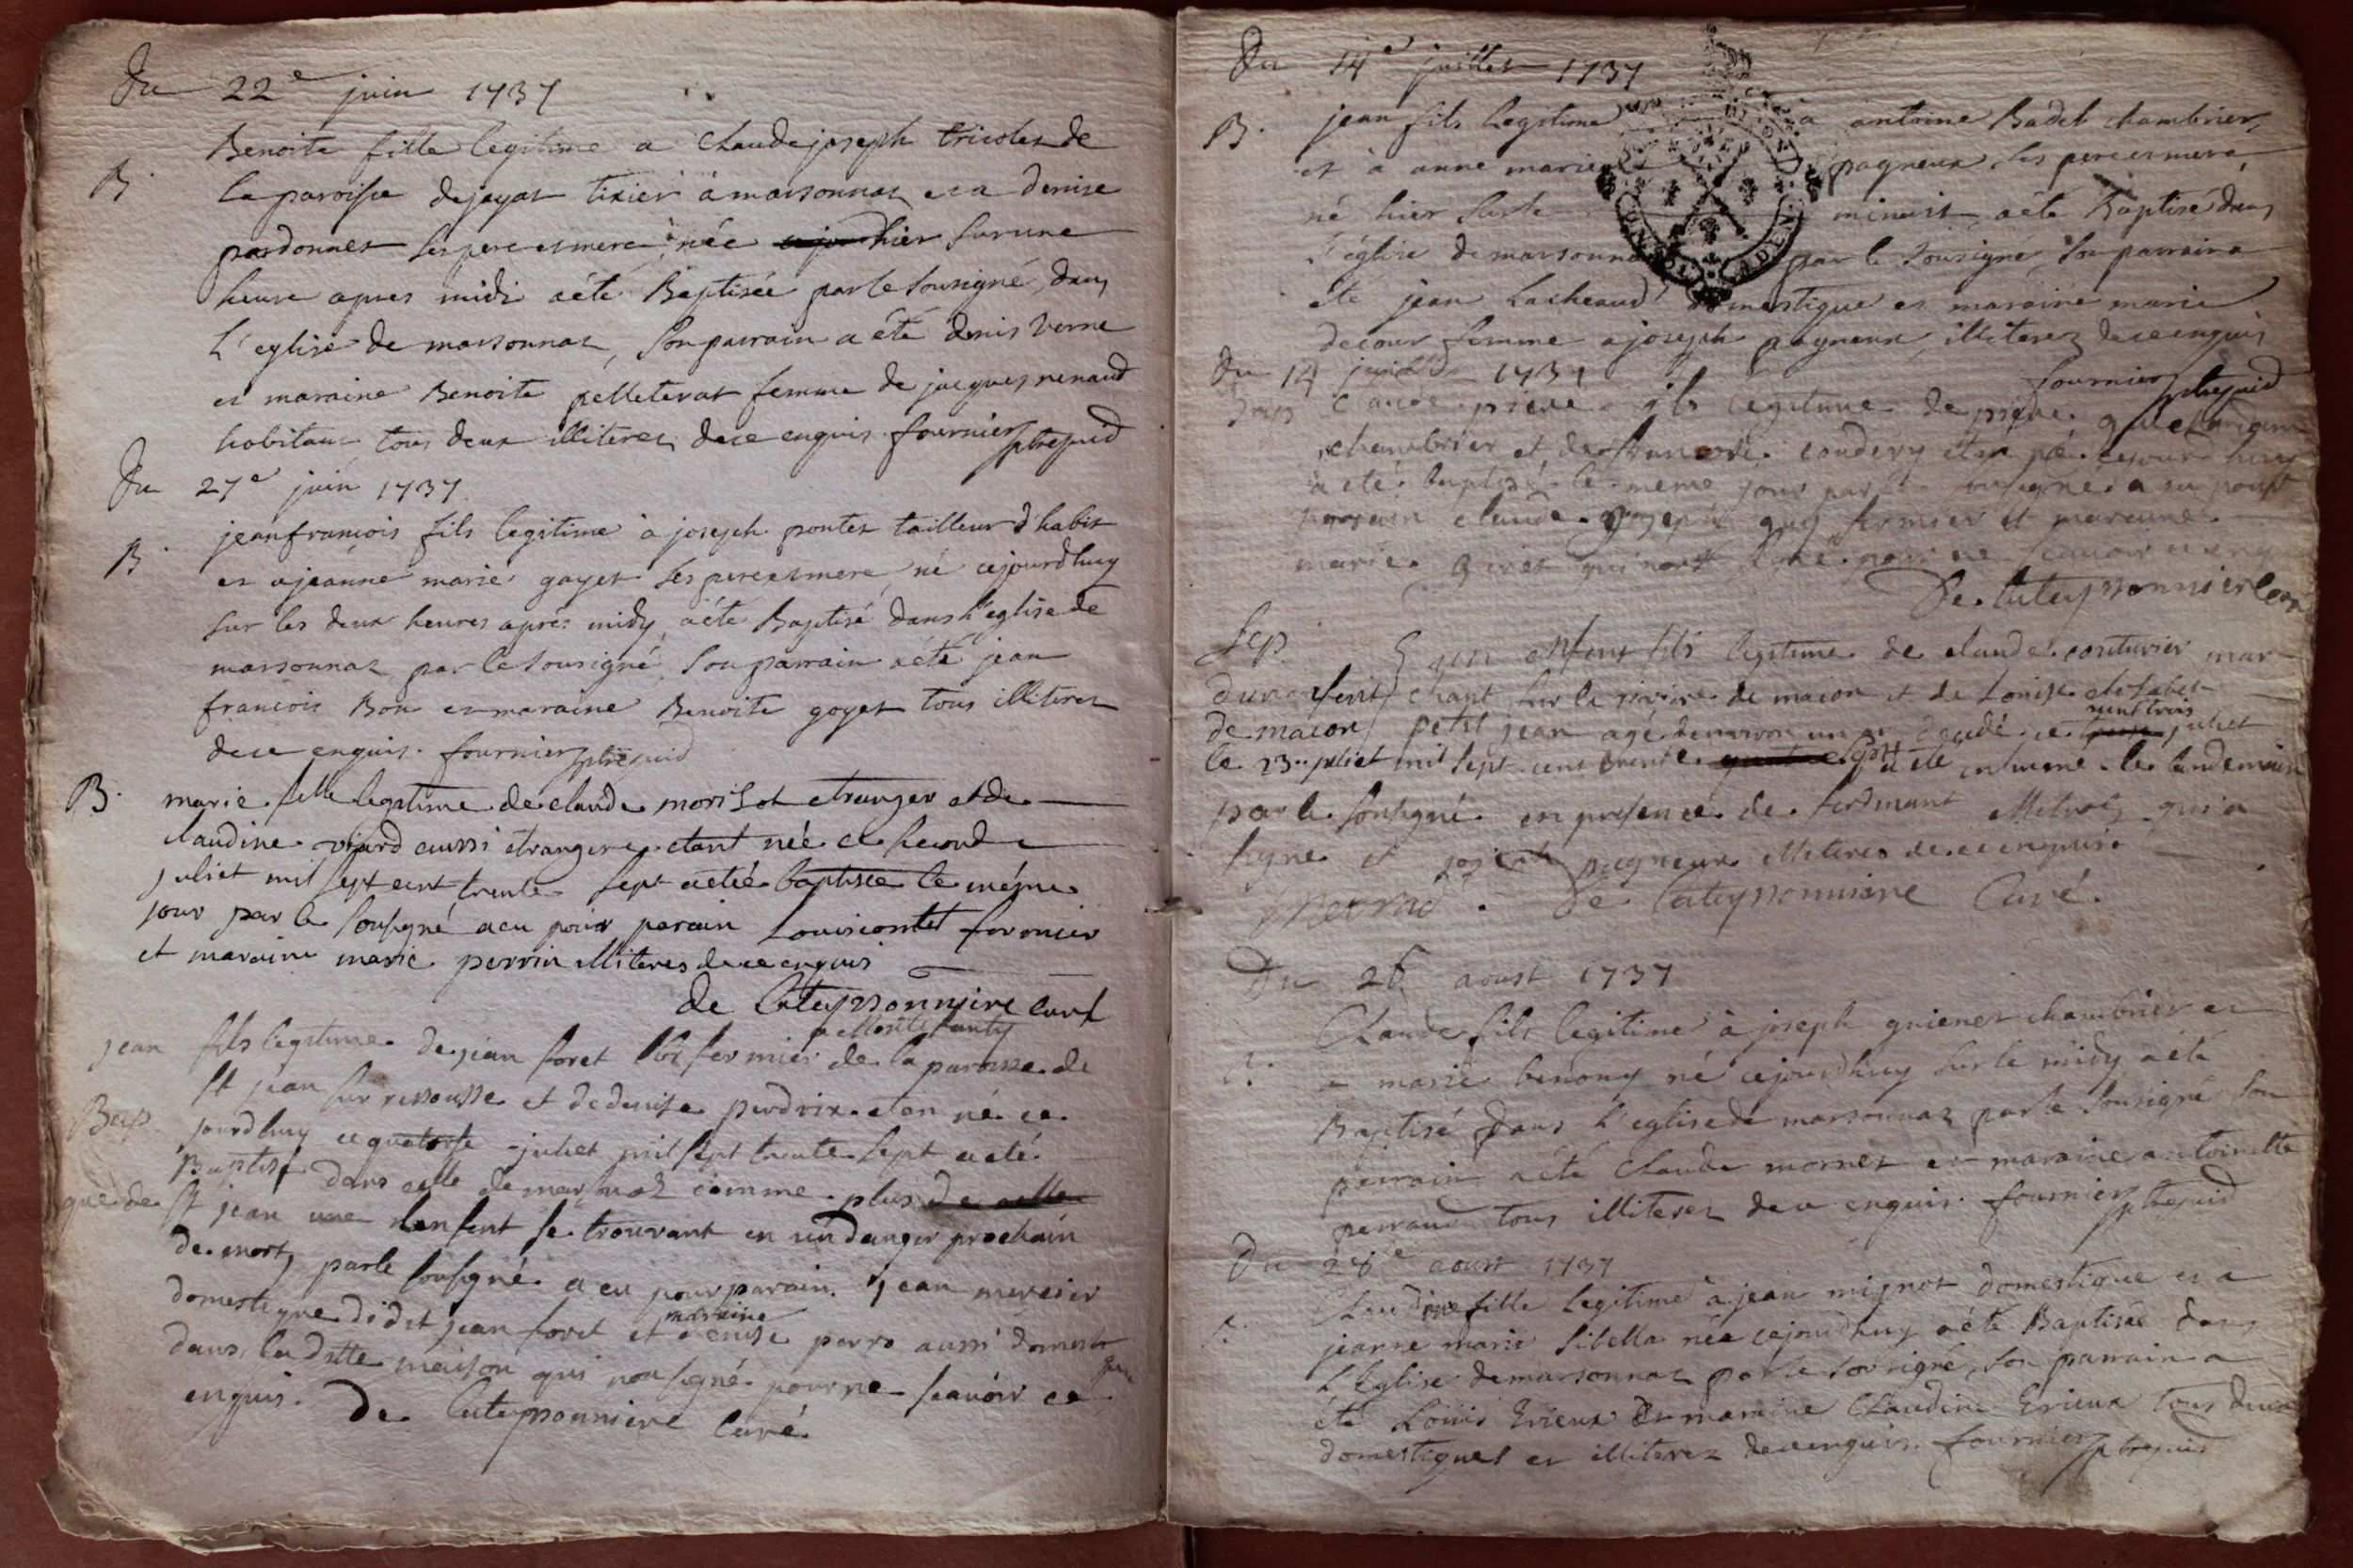 Du 22e juin 1737
B. Benoite fille legitime a Claude joseph tricolet de
la paroisse dejayat tixier à marsonnaz et a denise
pardonnet ses pere et mere, née hier sur une
heure apres midi a été Baptisée par le sousigné, dans
L'eglise de marsonnaz, son parrain a été denis verne
et maraine Benoite pelleterat femme de jacques renaud
habitans tous deux illiterez de ce enquis. fournier ptre
Du 27e juin 1737
B. jean françois fils legitime à joseph pontet tailleur d'habit
et a jeanne marie goyet ses pere et mere, né cejourdhuy
sur les deux heures après midy, a été Baptisé dans l'eglise de
marsonnaz par le sousigné, son parrain a été jean
francois Bon et maraine Benoite goyet tous illiterez
de ce enquis. fournier ptre
B. marie fille legitime de claude morisot etranger et de
claudine viard aussi etrangere etant née le second
juliet mil sept cent trente sept a eté baptisée le même
jour par le sousigné a eu pour parain Louis contet
et maraine marie perrin illiteres de ce enquis
De Lateyssonniere curé
jean fils legitime de jean foret fermier de la paroisse de
Bap. st jean sur ressousse et de denise perdrix etan né ce
jourdhuy ce quatorse juliet mil sept trente sept a eté
Baptisé dans celle de marsonaz comme plus de celle
que de st jean l'enfent se trouvant en un danger prochain
de mort, par le sousigné a eu pour parain jean mercier
domestique dudit jean foret et maraine denise perro aussi domestique
dans laditte maison qui non signé pour ne scauoir ce
enquis. De Lateyssonniere Curé
Du 14e juillet 1737
B. jean fils legitime à antoine Badel chambrier,
et à anne marie pagneux ses pere et mere,
né hier sur le minuit, a été Baptisé dans
l'église de marsonna par le sousigné, son parrain a
été jean Lacheaud domestique et maraine marie
decour femme a joseph pagneux, illiterez de ce enquis
fournier ptre
Du 14 1737
Bap Claude piere fils legitime de piere
chambrier et de francoise etan né cejourdhuy
a eté baptisé le meme jour par le sousigné a eu pour
parain claude joseph guy fermier et maraine
marie qui nont signé pour ne scauoir ce enq
De Lateyssonniere Curé
Sep. un enfent fils legitime de claude couturier mar
dun enfent chant sur la riviere de macon et de Louise
de macon petit jean agé denviron un an decedé ce vint trois juliet
le 23 juliet mil sept cens trente sept a eté inhumé le landemain
par le sousigné en presence de qui a
signe et joseph pagneux illiteres de ce enquis
De Lateyssonniere Curé.
Du 26 aoust 1737
Claude fils legitime à joseph guienet chambrier et
B. a marie benony né cejourdhuy sur le midy a été
Baptisé dans l'eglise de marsonnaz par le sousigné son
parrain a été Claude mornet et maraine antoinette
perraud tous illiterez de ce enquis. fournier ptre
Du 28e aoust 1737
Claudine fille legitime à jean mignot domestique et a
jeanne marie Sibella née cejourdhuy a été Baptisée dans
L'Eglise de marsonnaz par le sousigné, son parrain a
été Louis Erieux et maraine Claudine Erieux tous deux
domestiques et illiterez de ce enquis. fournier ptre